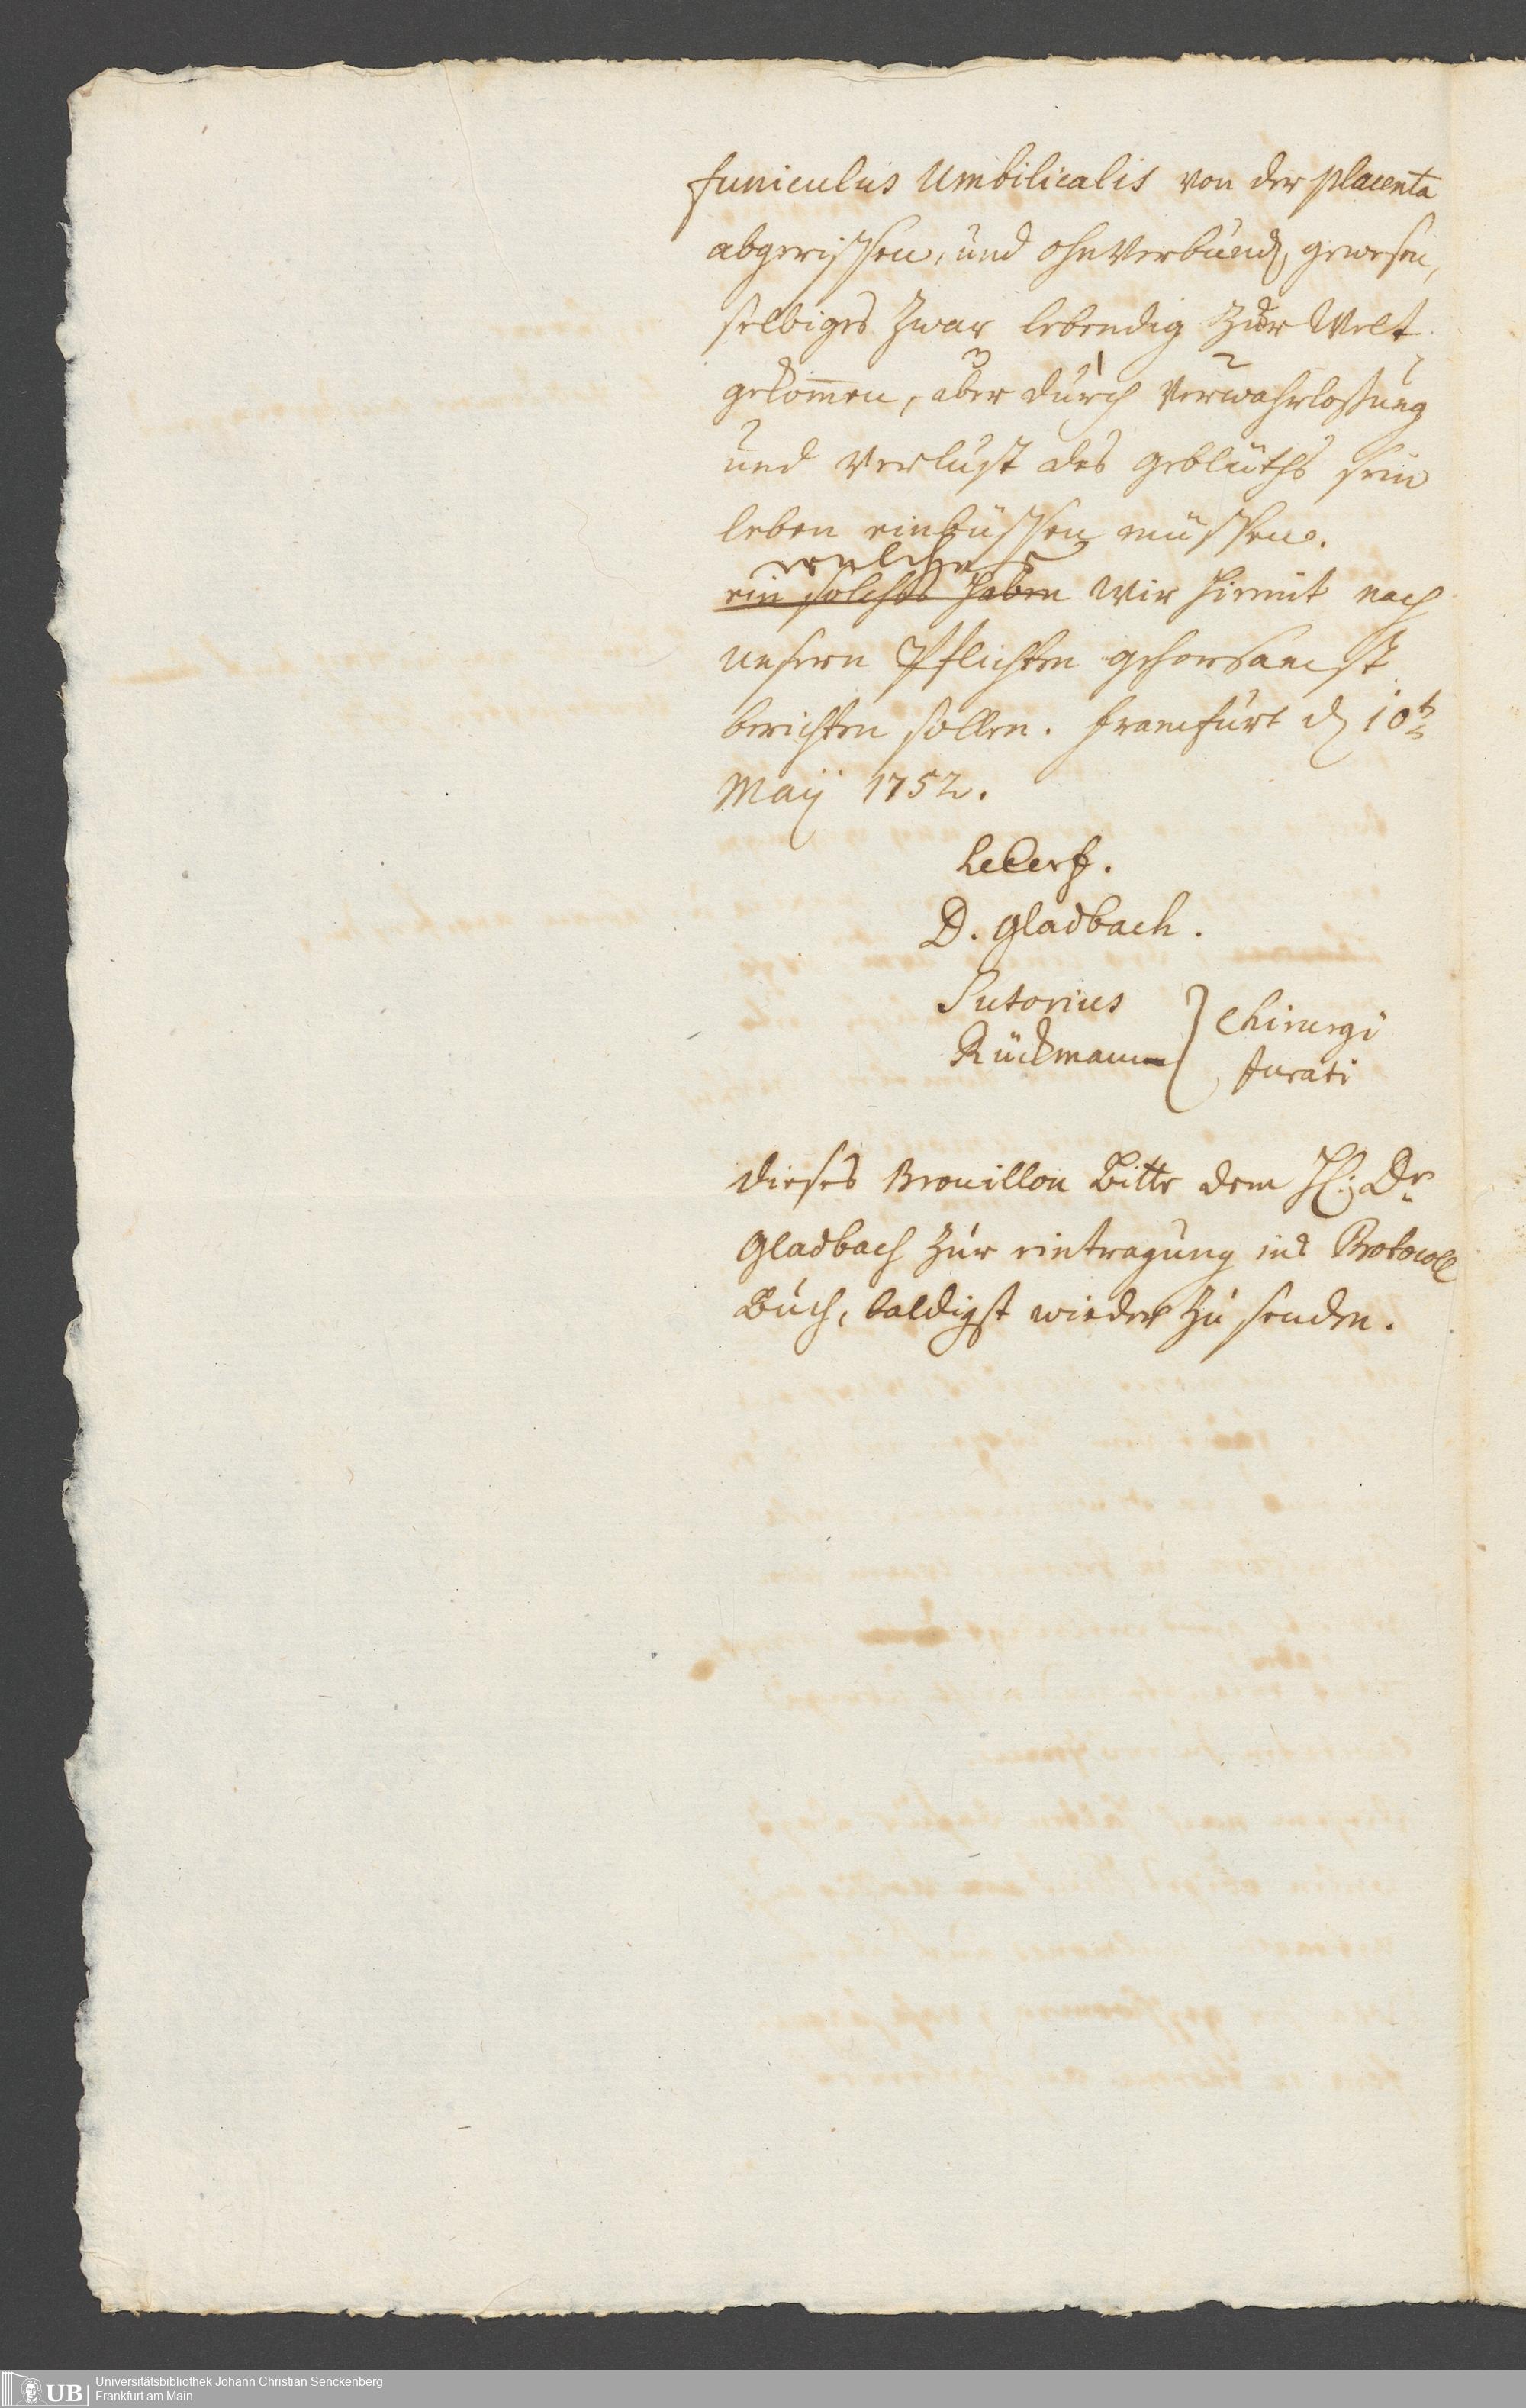 funiculus Umbilicalis von der placenta
abgerissen, und ohnverbund, gewesen,
selbiges zwar lebendig zur Welt
3 1 2
gekom̄en, aber durch Verwahrlosung
und Verlust des geblüths sein
leben einbüssen müssen.
welches
ein solches haben Wir hiemit nach
unsern Pflichten gehorsamst
berichten sollen. Francfurt d 10t
Maij 1752.
LeCerf.
D. Gladbach.
Sutorius
Rückmann } Chirurgi
Jurati
dieses Brouillon Bitte dem H. Dr
Gladbach zur eintragung ins Protocoll
Buch, baldigst wieder zu senden.
UB
Universitätsbibliothek Johann Christian Senckenberg
Frankfurt am Main